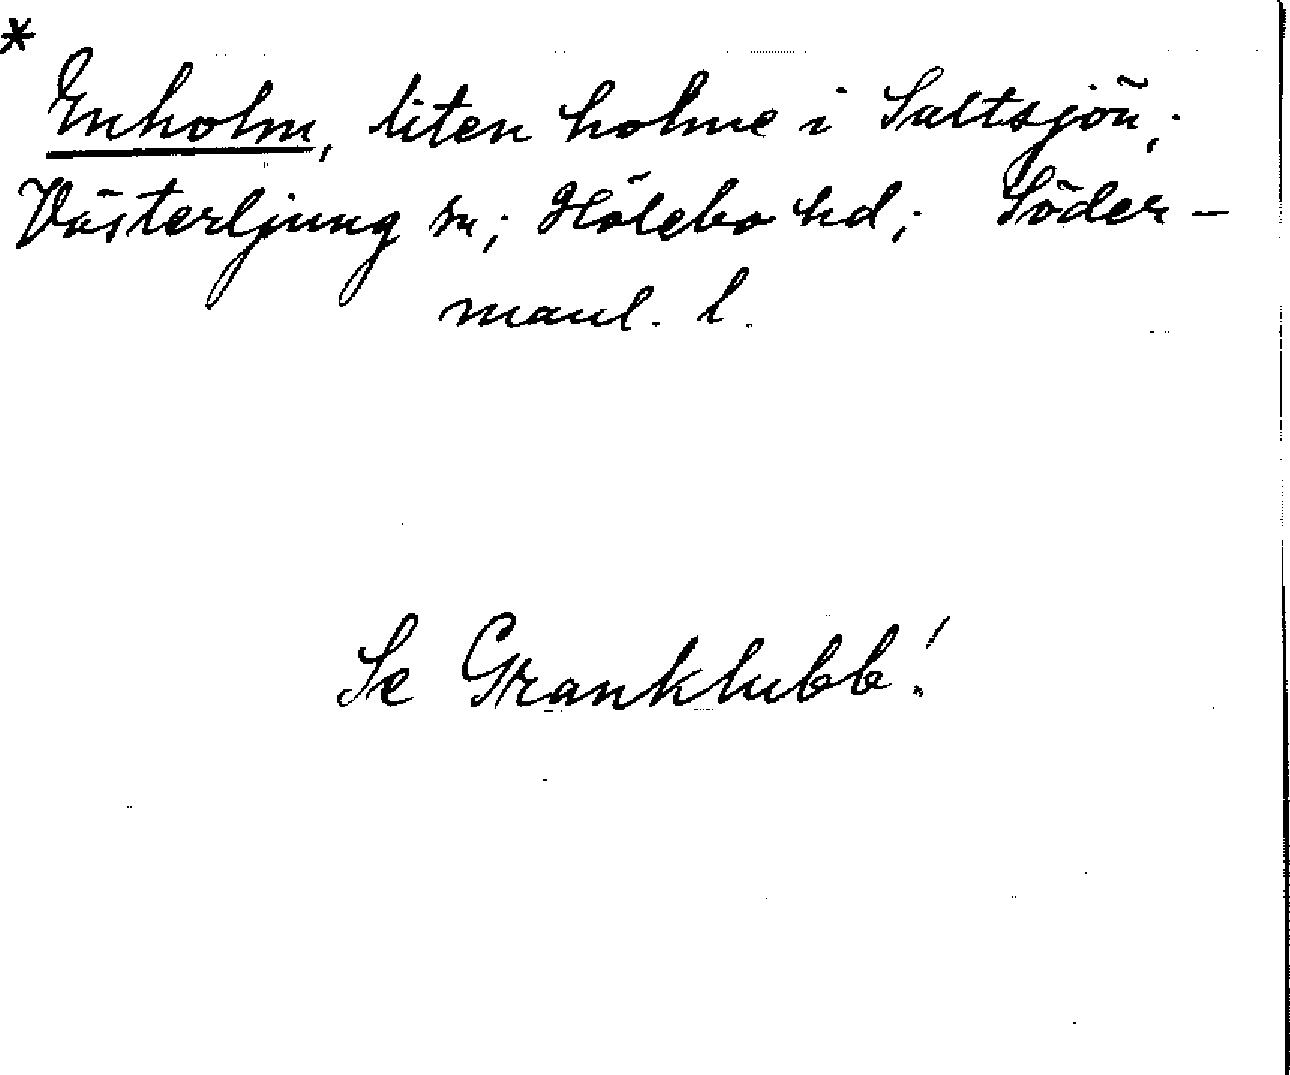 *
Enholm, liten holme i Saltsjön;
Västerljung sn; Hölebo hd; Söder-
manl. l.
Se Granklubb!